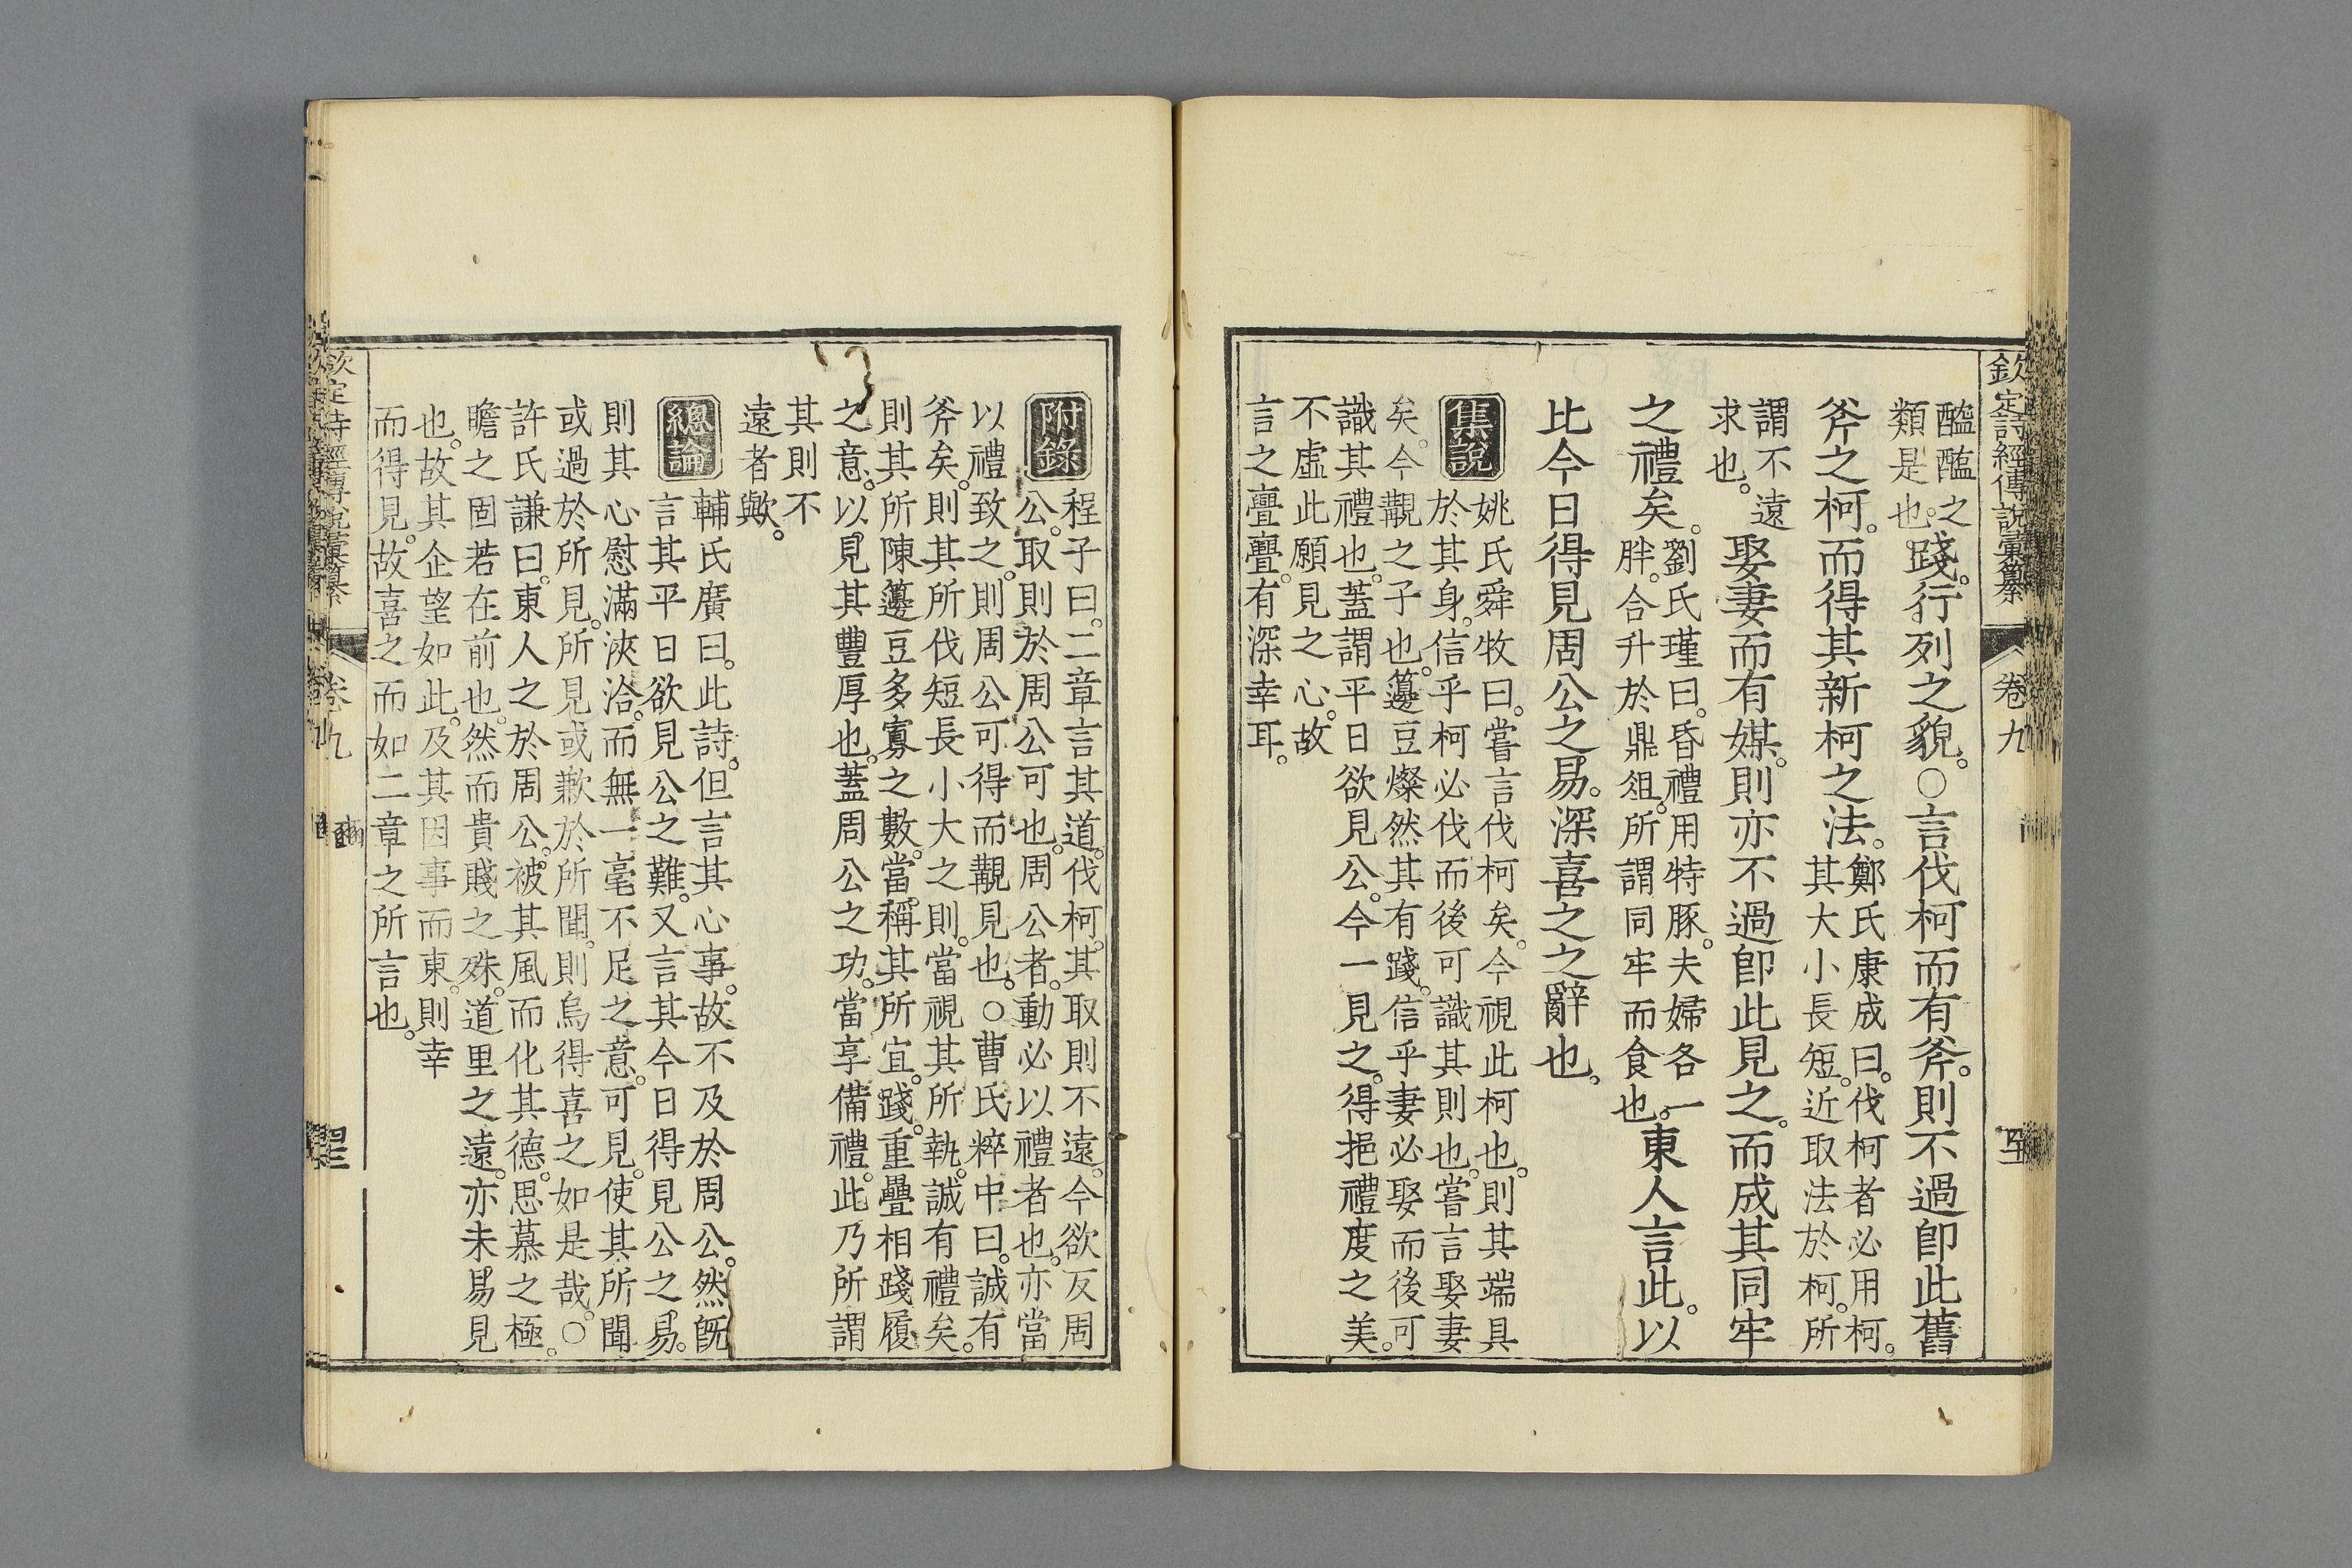 欽定詩經傳說彙纂 卷九
醯醢之
類是也。
踐。行列之貌。○言伐柯而有斧。則不過卽此舊
斧之柯。而得其新柯之法。
鄭氏康成曰。伐柯者必用柯。
其大小長短。近取法於柯。所
謂不遠
求也。
娶妻而有媒。則亦不過卽此見之。而成其同牢
之禮矣。
劉氏瑾曰。昏禮用特豚。夫婦各一
胖。合升於鼎俎。所謂同牢而食也。
東人言此。以
比今日得見周公之易。深喜之之辭也。
集說
姚氏舜牧曰。嘗言伐柯矣。今視此柯也。則其端具
於其身。信乎柯必伐而後可識其則也。嘗言娶妻
矣。今觀之子也。籩豆燦然其有踐。信乎妻必娶而後可
識其禮也。蓋謂平日欲見公。今一見之。得挹禮度之美。
不虛此願見之心。故
言之亹亹。有深幸耳。
附錄
程子曰。二章言其道。伐柯。其取則不遠。今欲反周
公。取則於周公可也。周公者。動必以禮者也。亦當
以禮致之。則周公可得而觀見也。○曹氏粹中曰。誠有
斧矣。則其所伐短長小大之則。當視其所執。誠有禮矣。
則其所陳籩豆多寡之數。當稱其所宜。踐。重疊相踐履
之意。以見其豐厚也。蓋周公之功。當享備禮。此乃所謂
其則不
遠者歟。
總論
輔氏廣曰。此詩。但言其心事。故不及於周公。然旣
言其平日欲見公之難。又言其今日得見公之易。
則其心慰滿浹洽。而無一毫不足之意。可見。使其所聞
或過於所見。所見或歉於所聞。則烏得喜之如是哉。○
許氏謙曰。東人之於周公。被其風而化其德。思慕之極。
瞻之固若在前也。然而貴賤之殊。道里之遠。亦未易見
也。故其企望如此。及其因事而東。則幸
而得見。故喜之而如二章之所言也。
欽定詩經傳說彙纂 卷九